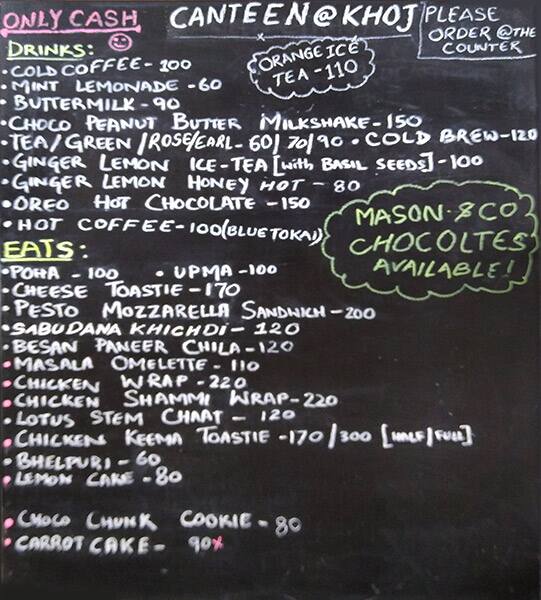 ONLY CASH
CANTEEN@KHOJ
PLEASE
ORDER @THE
COUNTER
DRINKS:
ORANGE ICE
TEA - 110
• COLD COFFEE - 100
• MINT LEMONADE - 60
• BUTTERMILK - 90
• CHOCO PEANUT BUTTER MILKSHAKE - 150
• TEA/GREEN/ROSE/EARL - 60/70/90 • COLD BREW - 120
• GINGER LEMON ICE-TEA [with BASIL SEEDS] - 100
• GINGER LEMON HONEY HOT - 80
• OREO HOT CHOCOLATE - 150
• HOT COFFEE - 100 (BLUE TOKAI)
MASON & CO
CHOCOLTES
AVAILABLE!
EATS:
• POHA - 100 • UPMA - 100
• CHEESE TOASTIE - 170
• PESTO MOZZARELLA SANDWICH - 200
• SABUDANA KHICHDI - 120
• BESAN PANEER CHILA - 120
• MASALA OMELETTE - 110
• CHICKEN WRAP - 220
• CHICKEN SHAMMI WRAP - 220
• LOTUS STEM CHAAT - 120
• CHICKEN KEEMA TOASTIE - 170/300 [HALF/FULL]
• BHELPURI - 60
• LEMON CAKE - 80
• CHOCO CHUNK COOKIE - 80
• CARROT CAKE - 90x